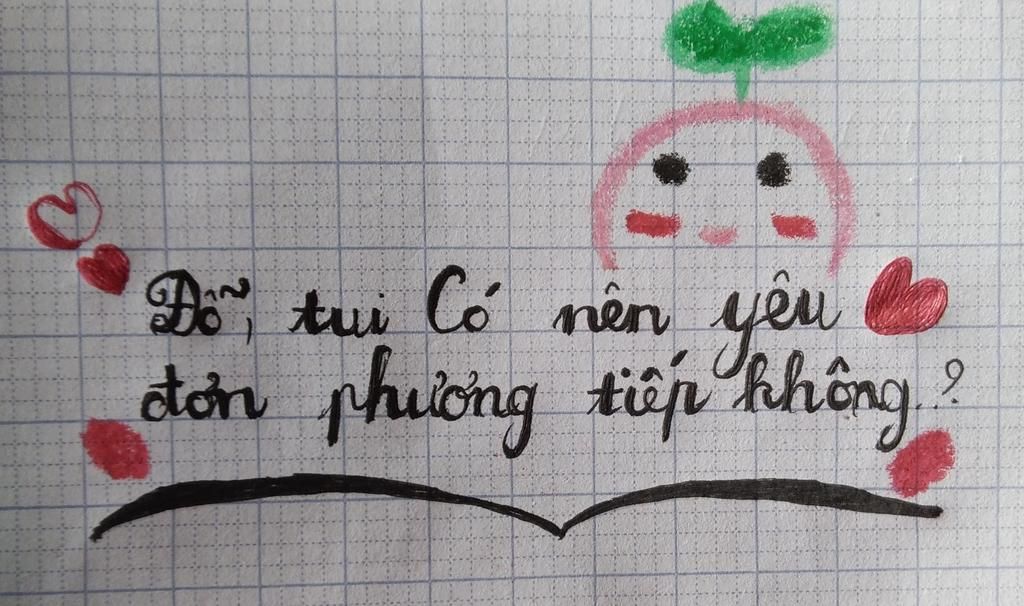 Đỗ, tui Có nên yêu
đơn phương tiếp không..?